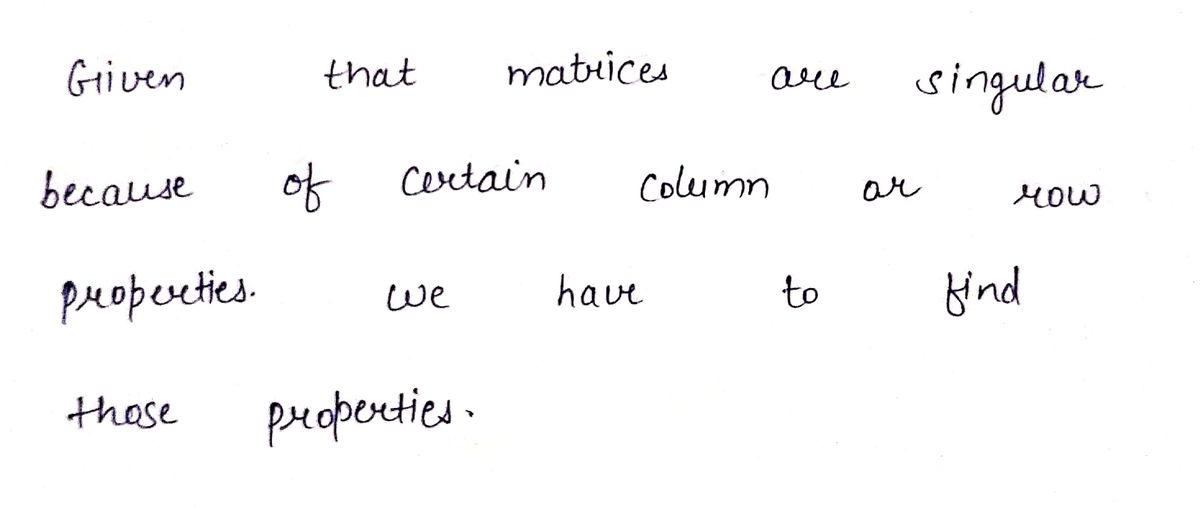 Given that matrices are singular
because of certain column or row
properties. we have to find
those properties.